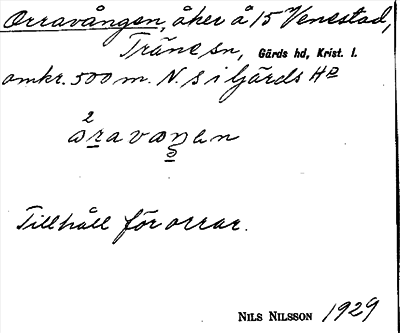 Orravången, åker å 15 Venestad,
Träne sn, Gärds hd, Krist. l.
omkr. 500 m. N. S i Gärds Hd
Tillhåll för orrar.
NILS NILSSON 1929